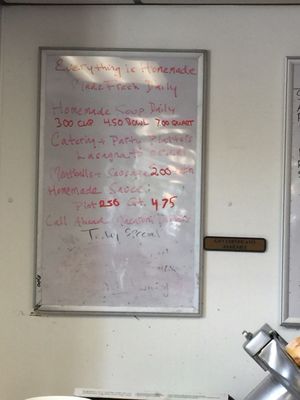 Everything is Homemade
Made Fresh Daily
Homemade Soup Daily
300 CUP 450 BOWL 700 QUART
Catering + Party Platters
Lasagna to order
Meatballs + Sausage 200
Homemade Sauce:
Pint 250 Qt. 475
Call Ahead
Today Special
GIFT CERTIFICATES
AVAILABLE